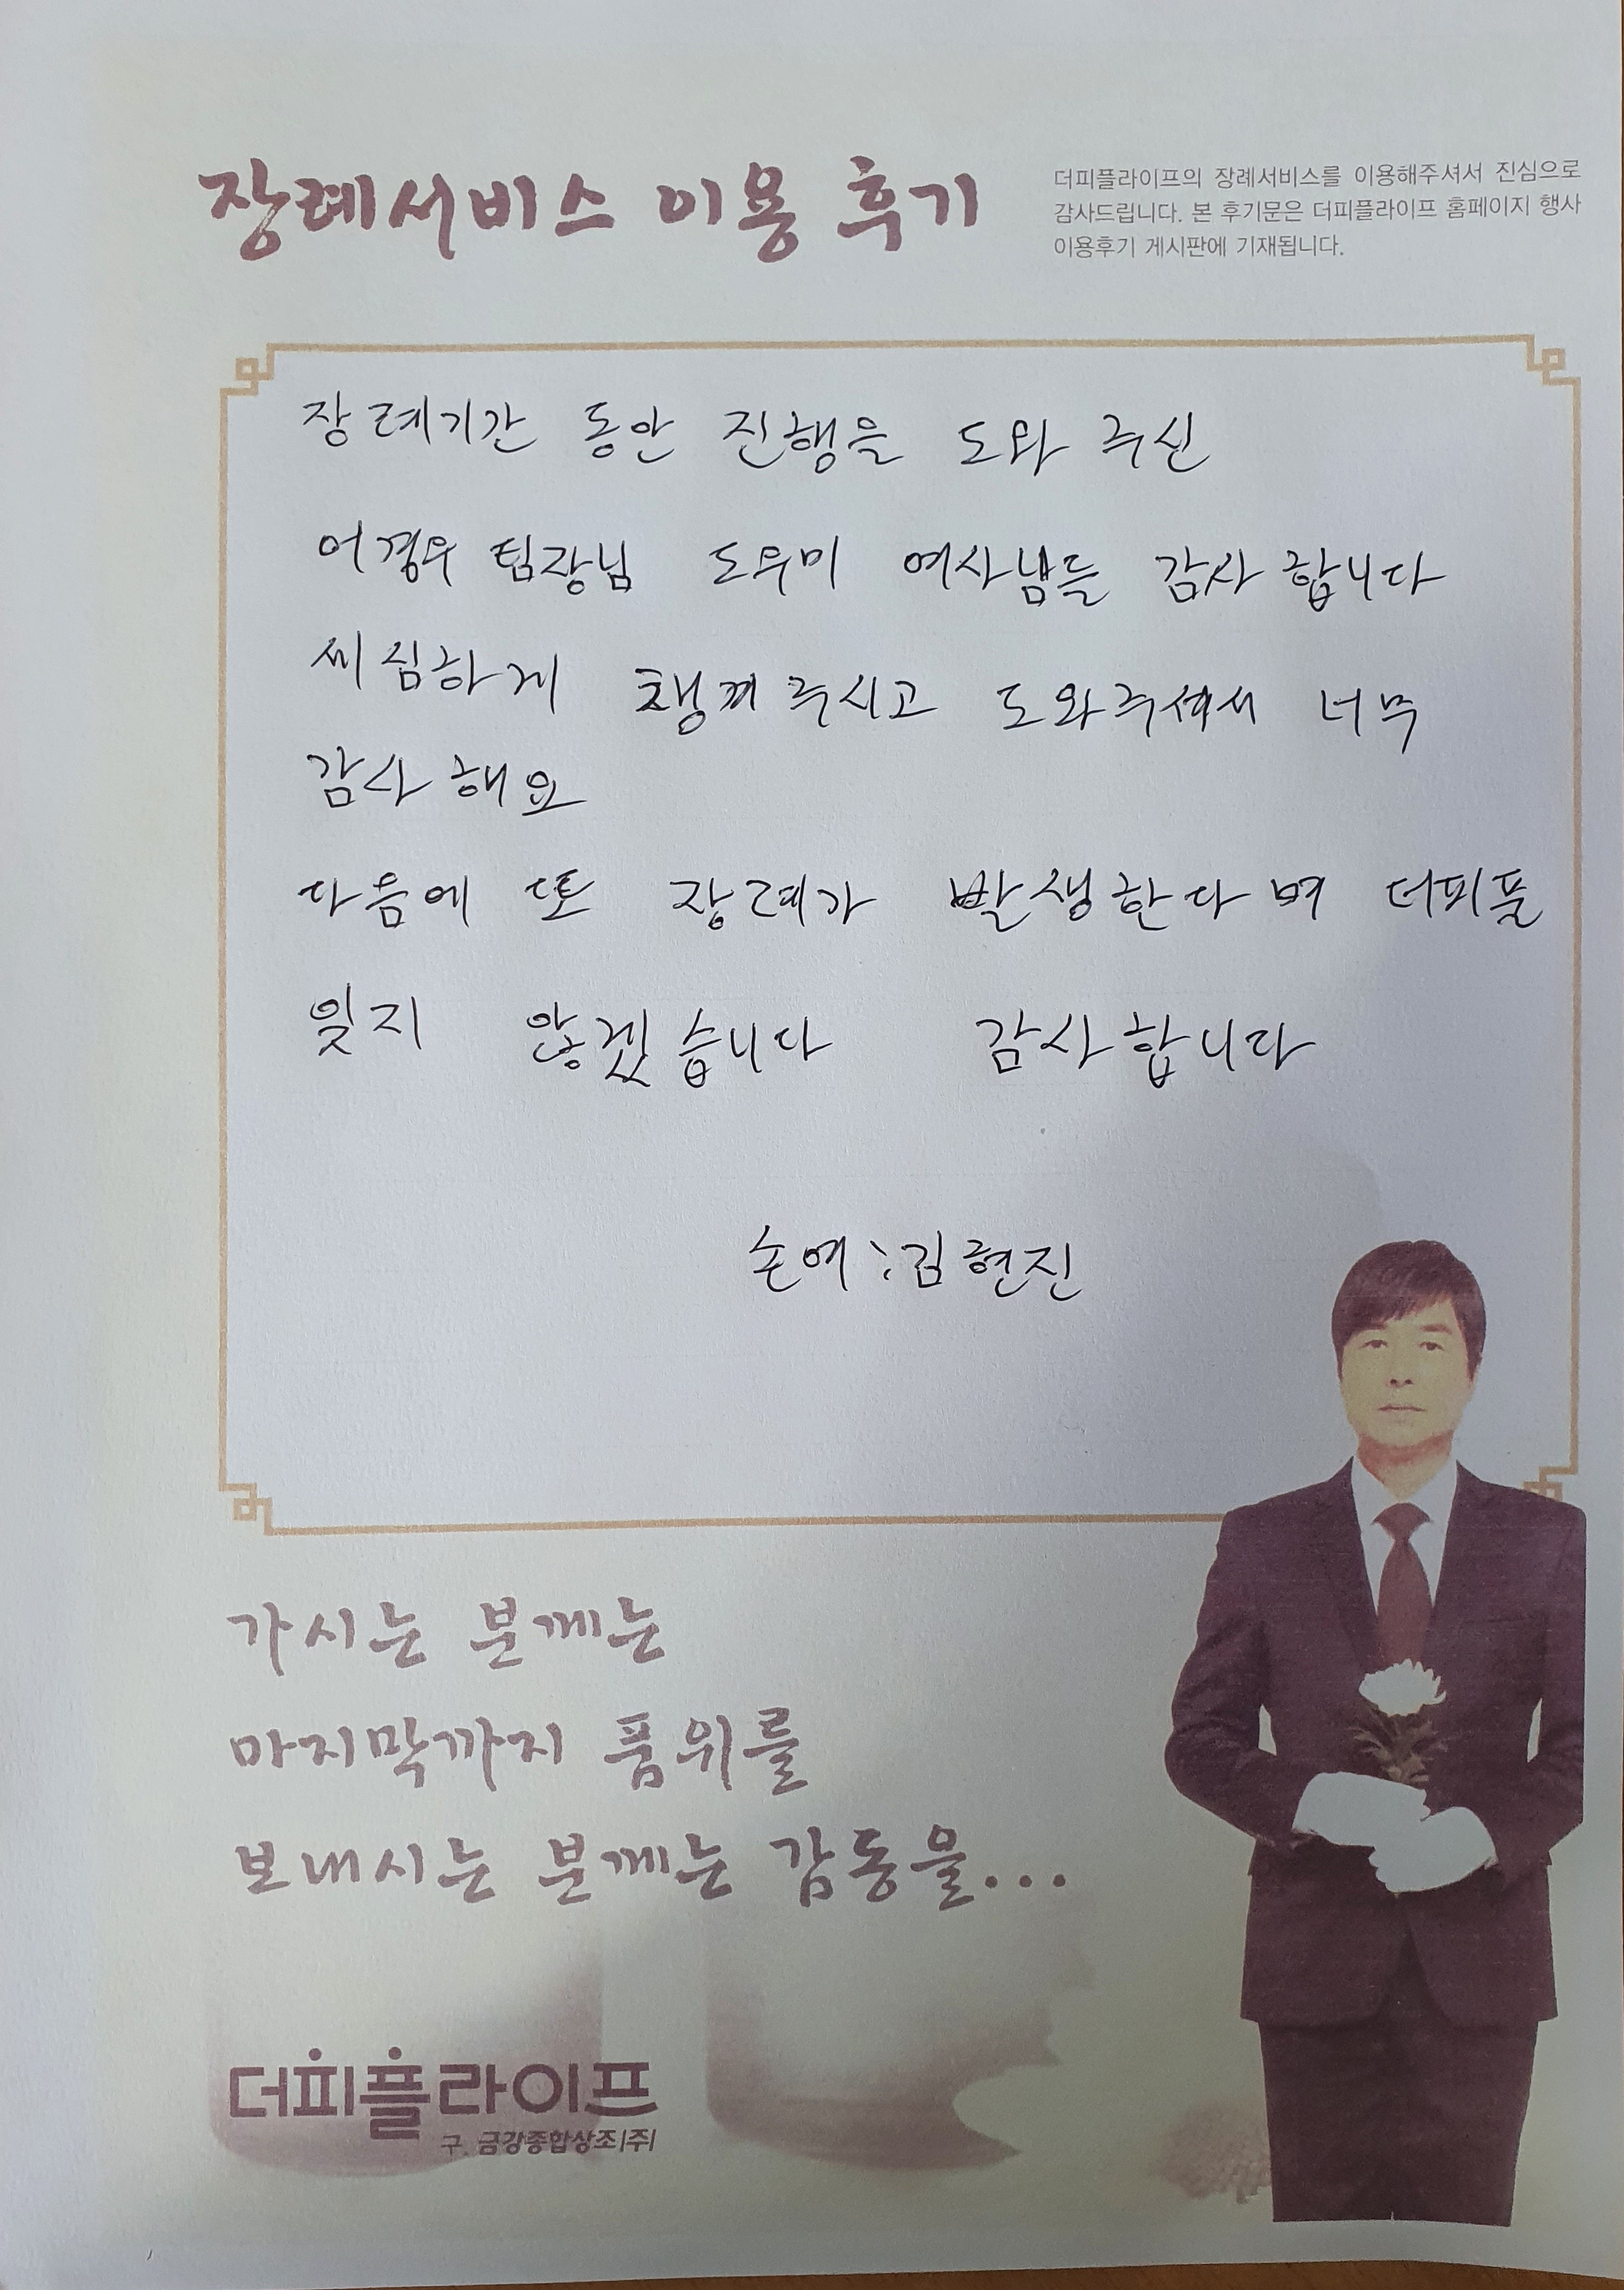 장례서비스 이용 후기
더피플라이프의 장례서비스를 이용해주셔서 진심으로
감사드립니다. 본 후기문은 더피플라이프 홈페이지 행사
이용후기 게시판에 기재됩니다.
장례기간 동안 진행을 도와 주신
어경우 팀장님 도우미 여사님들 감사합니다
세심하게 챙겨주시고 도와주셔서 너무
감사해요
다음에 또 장례가 발생한다며 더피플
잊지 않겠습니다 감사합니다
손여:김현진
가시는 분께는
마지막까지 품위를
보내시는 분께는 감동을...
더피플라이프
구. 금강종합상조|주|